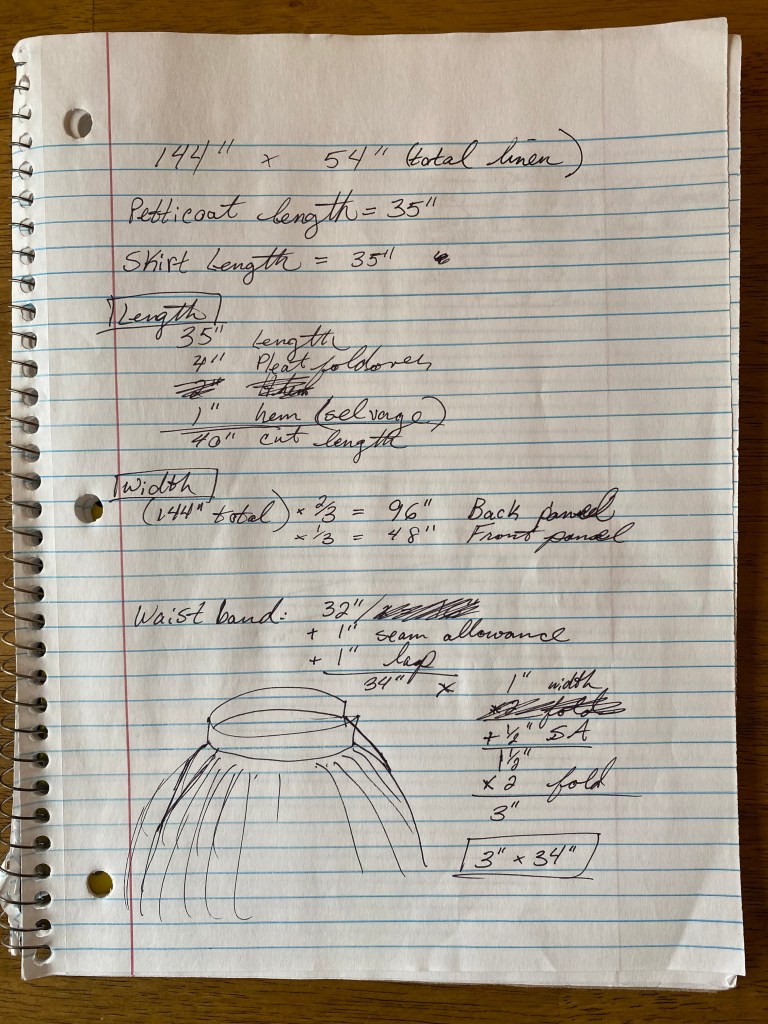 144" x 54" (total linen)
Petticoat length = 35"
Skirt Length = 35"
Length
35" Length
4" Pleat foldover
1" hem (selvage)
40" cut length
Width
(144" total) x 2/3 = 96" Back panel
x 1/3 = 48" Front panel
Waist band: 32"/
+ 1" seam allowance
+ 1" lap
34" x 1" width
+ 1/2" SA
1 1/2"
x 2 fold
3"
3" x 34"